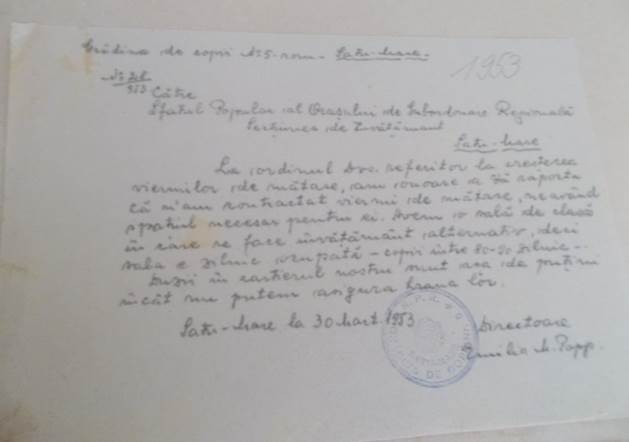 Grădina de copii No 5. rom - Satu-Mare.
1953
953
Către
Sfatul Popular al Orașului de Subordonare Regională
Secțiunea de Învățământ
Satu-Mare
La ordinul Dvs. referitor la creșterea
viermilor de mătase, am onoare a Vă raporta
că n'am contractat viermi de mătase, neavând
spațiul necesar pentru ei. Avem o sală de clasă
în care se face învățământ alternativ, deci
sala e zilnic ocupată - copii între 80-90 zilnic -
Duzii în cartierul nostru sunt așa de puțini
încât nu putem asigura hrana lor.
Satu-Mare la 30 Mart. 1953
Directoare
Emilia M. Papp.